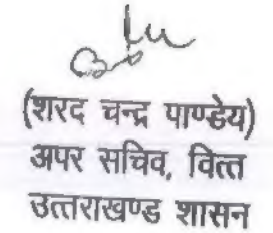 (शरद चन्द्र पाण्डेय)
अपर सचिव, वित्त
उत्तराखण्ड शासन